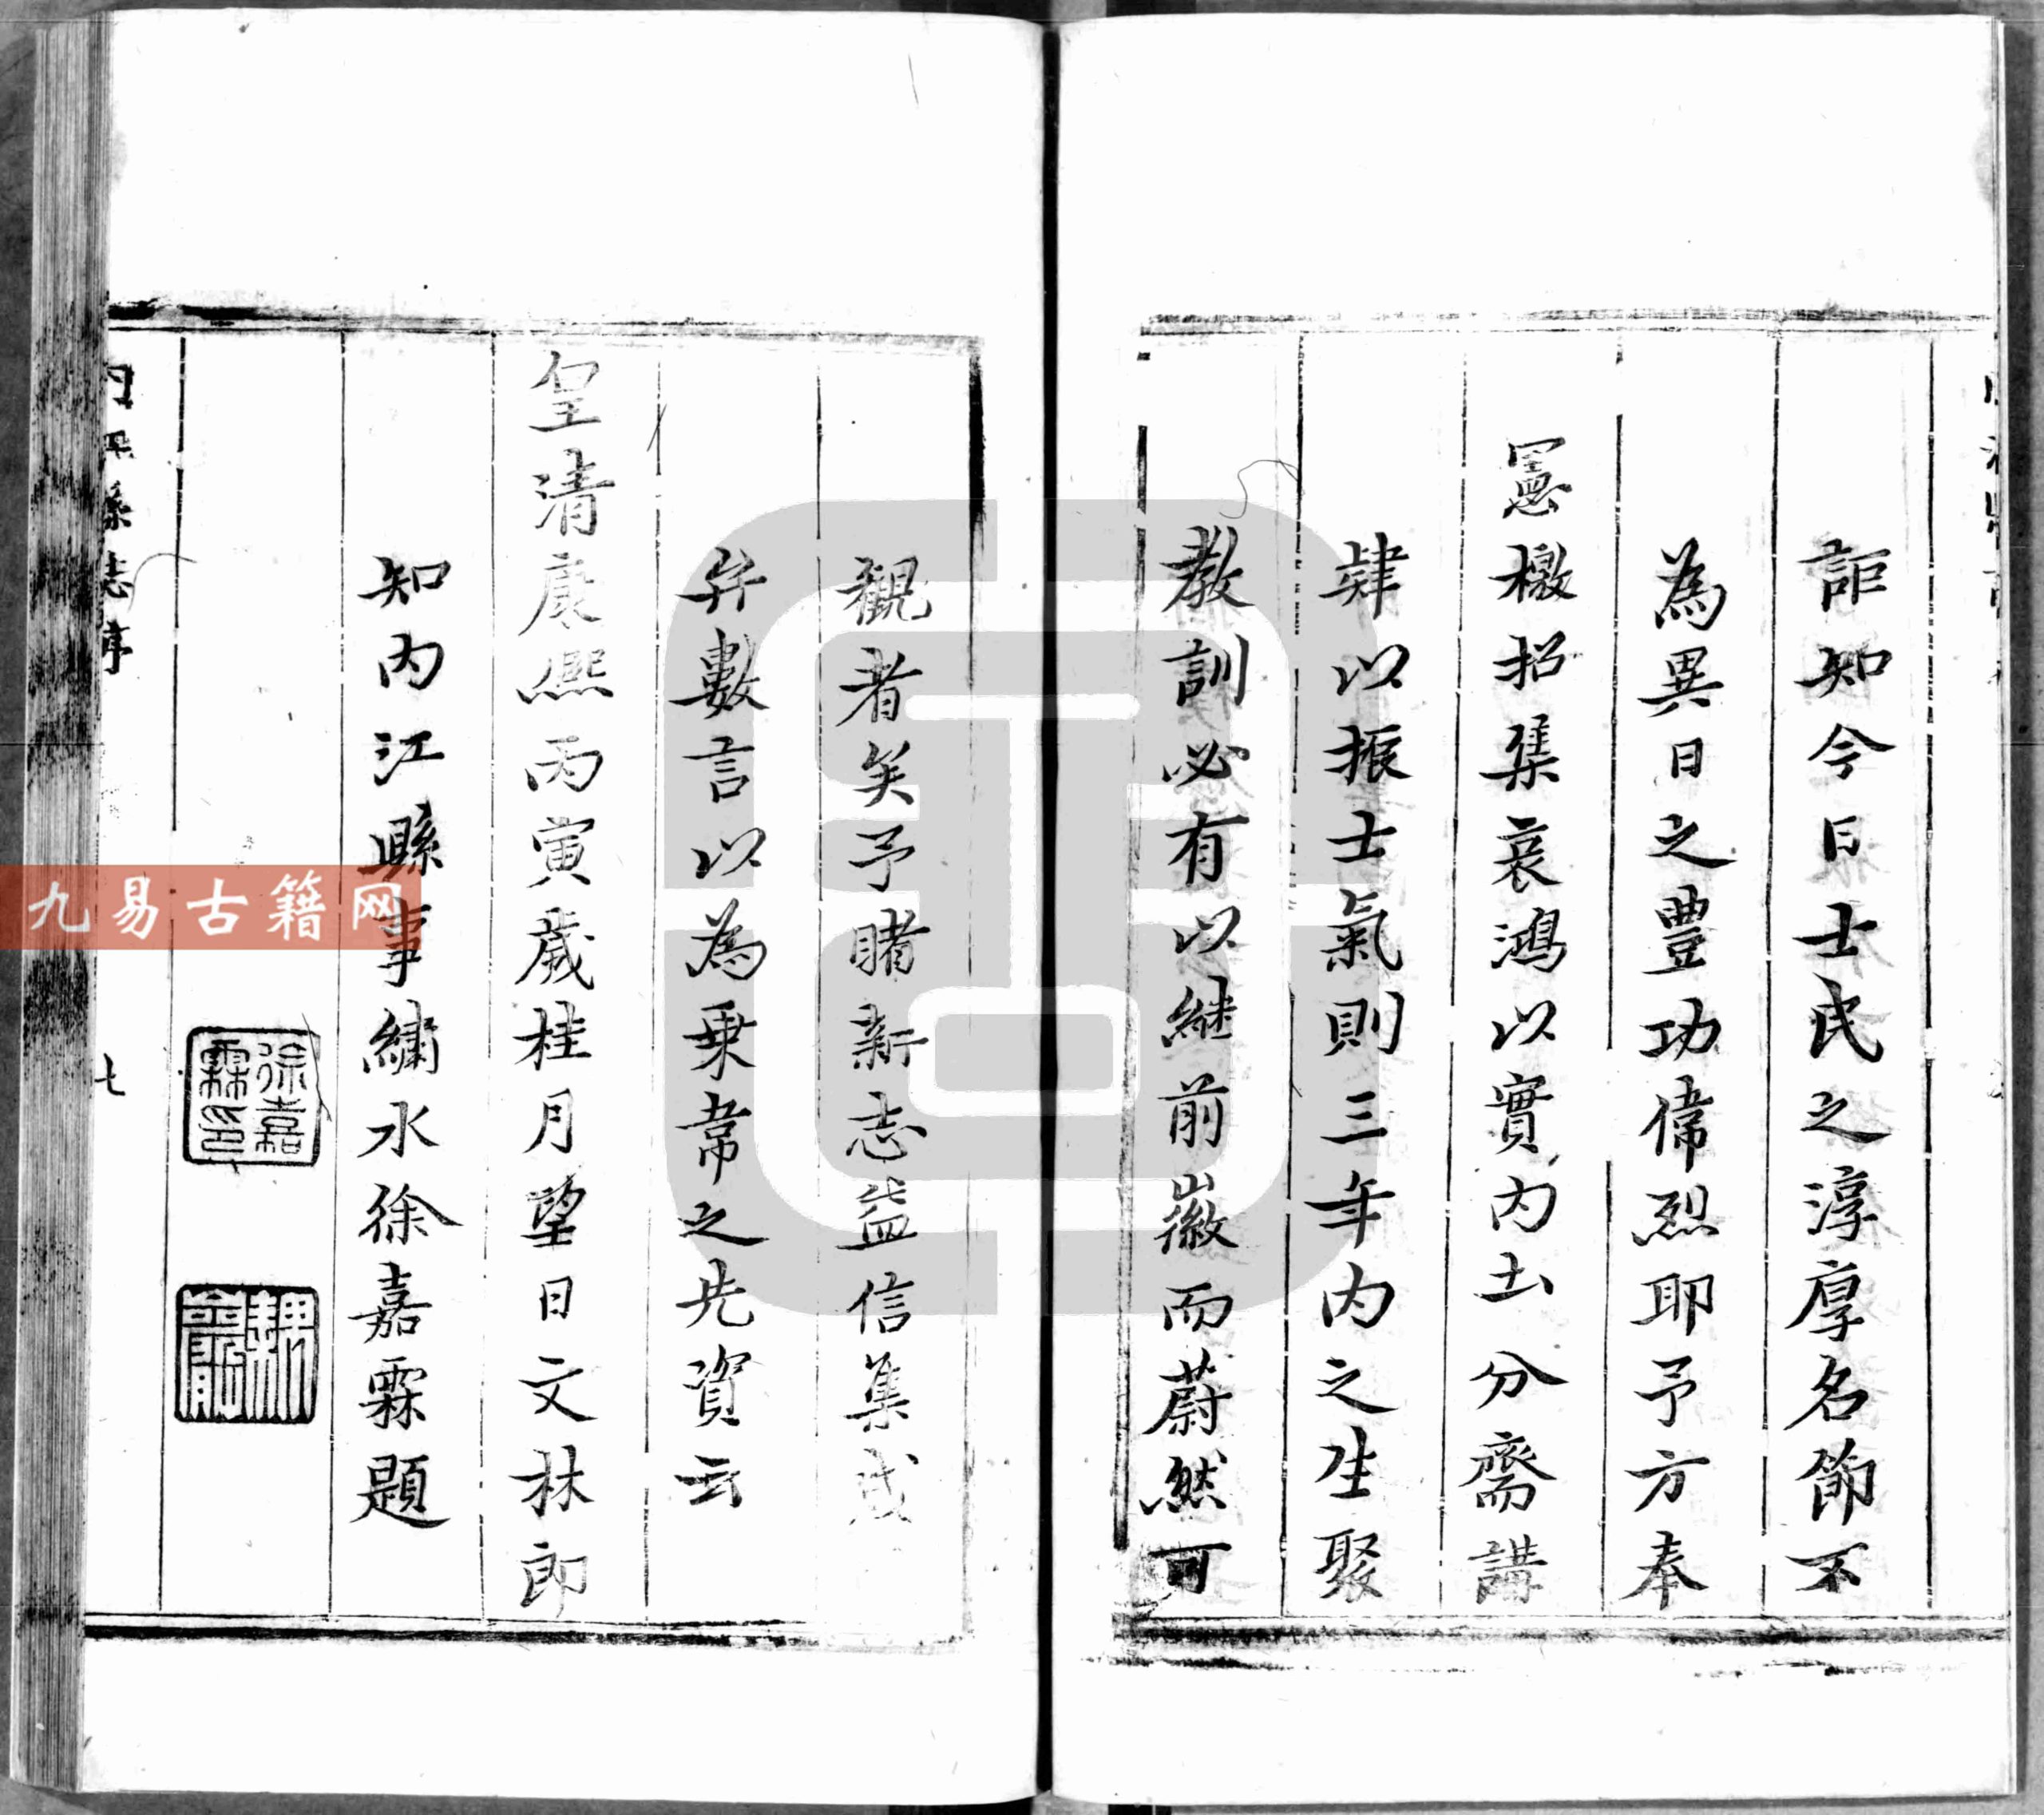 詎知今日士民之淳厚名節不
為異日之豊功偉烈耶予方奉
憲檄招集哀鴻以實内土分齋講
肄以振士氣則三年内之生聚
教訓必有以継前徽而蔚然可
觀者矣予睹新志益信集成
弁數言以為乗韋之先資云
皇清康熙丙寅歲桂月望日文林郎
知内江縣事繡水徐嘉霖題
徐嘉霖印
内江縣志序
七
九易古籍网